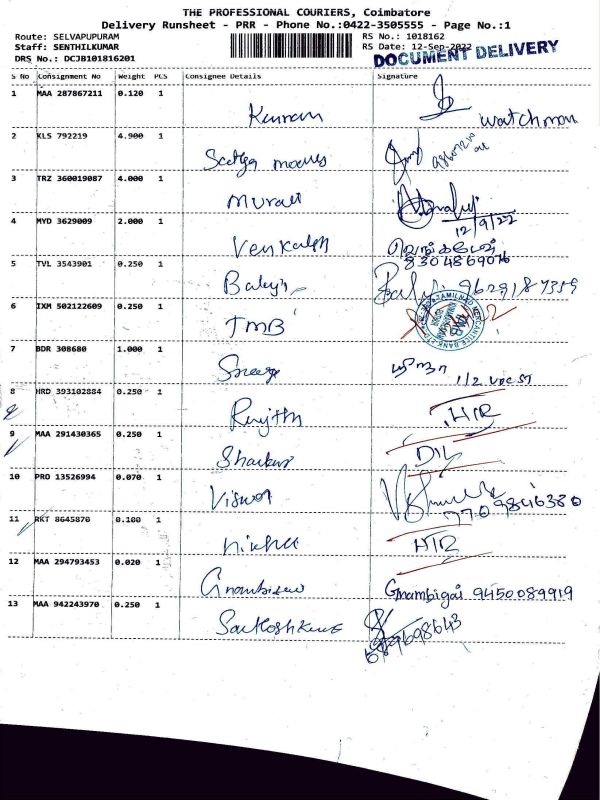 THE PROFESSIONAL COURIERS, Coimbatore
Delivery Runsheet - PRR - Phone No.:0422-3505555 - Page No.:1
Route: SELVAPUPURAM
RS No.: 1018162
Staff: SENTHILKUMAR
RS Date: 12-Sep-2022
DOCUMENT DELIVERY
DRS No.: DCJB101816201
S No Consignment No Weight PCS Consignee Details Signature
1 MAA 287867211 0.120 1 Kannan watchman
2 KLS 792219 4.900 1 Sathya
3 TRZ 360019087 4.000 1 Murali 12/9/22
4 MYD 3629009 2.000 1 Venkatesh வெங்கடேஷ்
8304869076
5 TVL 3543901 0.250 1 Balaji 9629187359
6 IXM 502122609 0.250 1 TMB
7 BDR 308680 1.000 1
8 HRD 393102884 0.250 1 Ranjith
9 MAA 291430365 0.250 1 D/L
10 PRO 13526994 0.070 1 7709846380
11 RKT 8645870 0.100 1
12 MAA 294793453 0.020 1 Gnambigai 9450089919
13 MAA 942243970 0.250 1